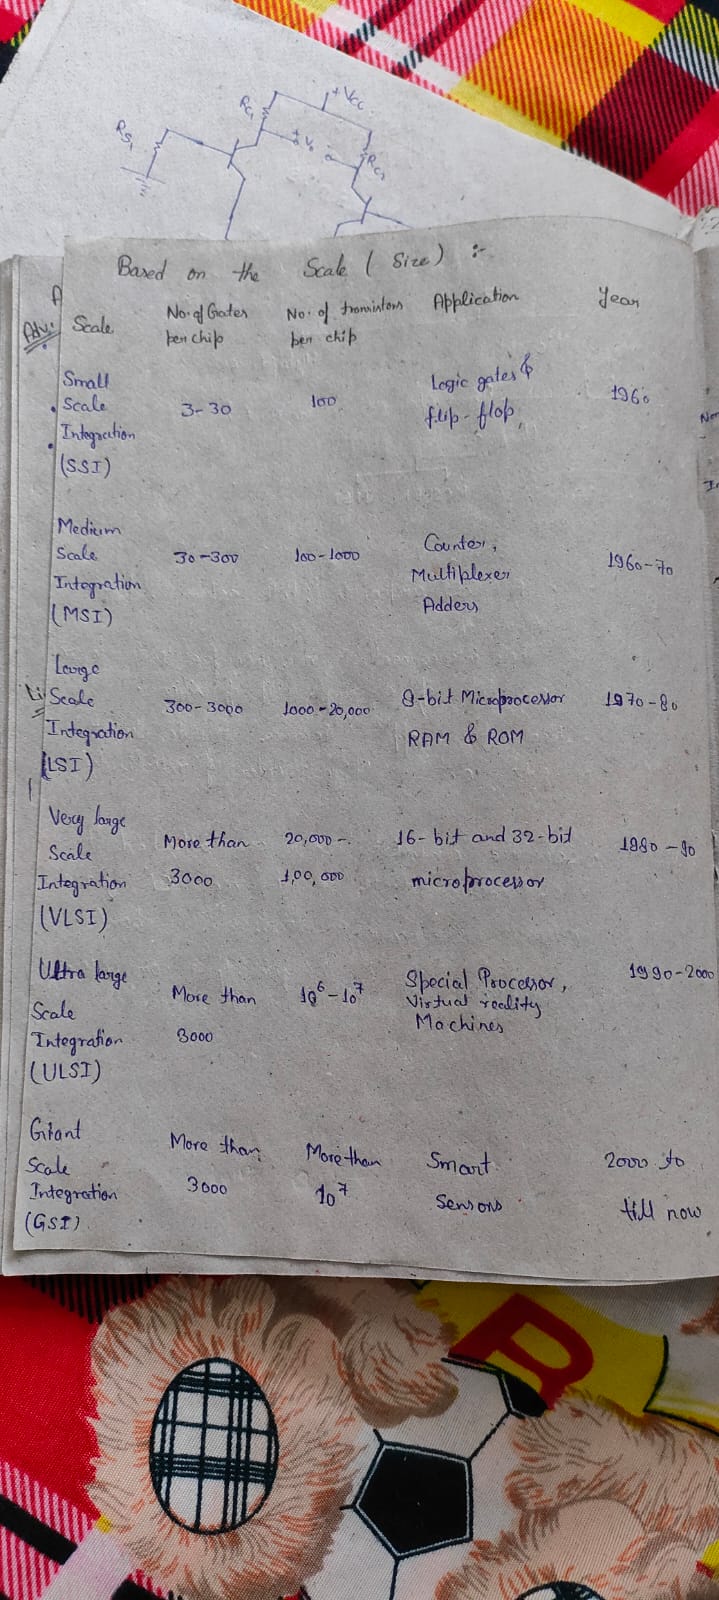 +Vcc
RC1
RS1
+ Vo -
RC2
Based on the Scale ( Size ) :-
Adv:
Scale No. of Gates per chip No. of transistors per chip Application Year
Small
Scale
Integration
(SSI)
3-30
100
Logic gates &
flip-flop,
1960
Medium
Scale
Integration
(MSI)
30-300
100-1000
Counter,
Multiplexer
Adders
1960-70
Large
Scale
Integration
(LSI)
300-3000
1000-20,000
8-bit Microprocessor
RAM & ROM
1970-80
Very large
Scale
Integration
(VLSI)
More than
3000
20,000-
1,00,000
16-bit and 32-bit
microprocessor
1980-90
Ultra large
Scale
Integration
(ULSI)
More than
3000
10⁶-10⁷
Special Processor,
Virtual reality
Machines
1990-2000
Giant
Scale
Integration
(GSI)
More than
3000
More than
10⁷
Smart
Sensors
2000 to
till now